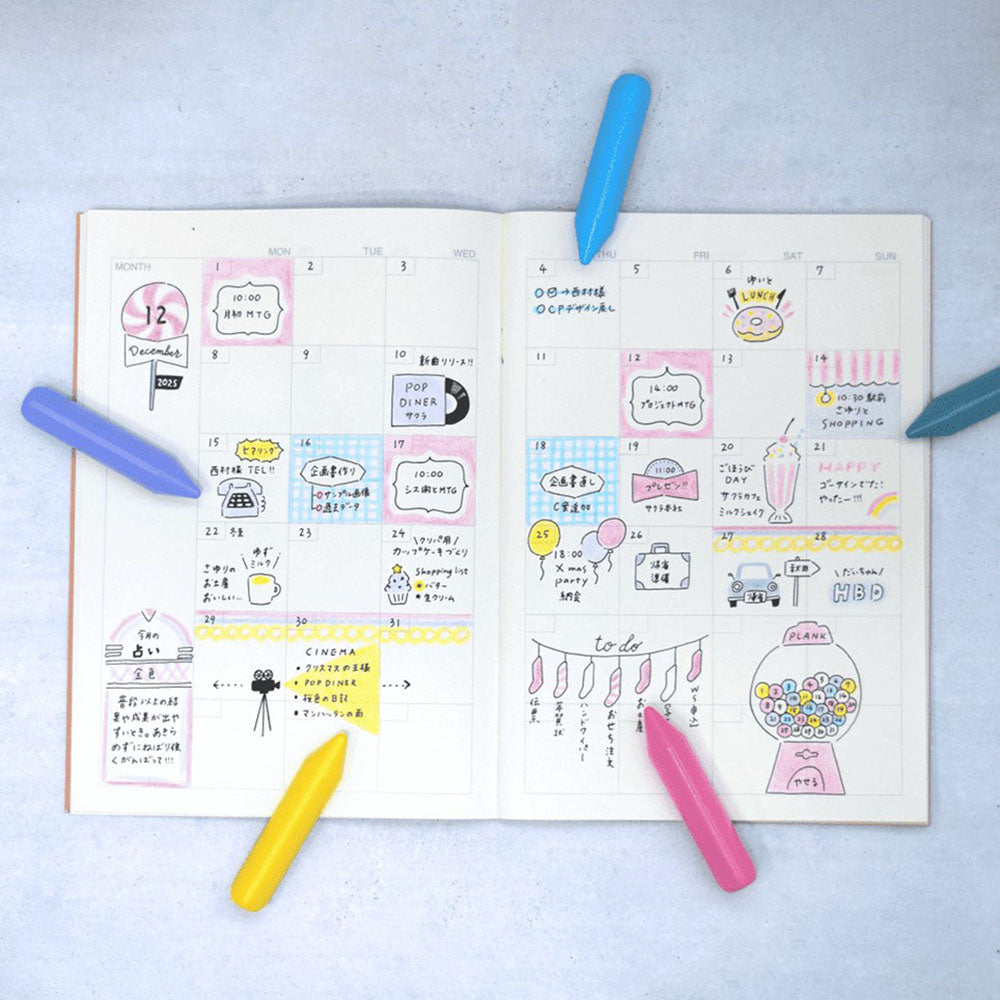 MON TUE WED
MONTH
12
December
2025
1
10:00
月初 MTG
2
3
8
9
10
新曲リリース!!
POP
DINER
サクラ
15
ヒアリング
西村様 TEL!!
16
企画書作り
サンプル画像
過去データ
17
10:00
シス術とMTG
22 冬至
ゆず
ミルク
さゆりの
お土産
おいしい…
23
24
\クリパ用/
カップケーキづくり
Shopping list
★バター
★生クリーム
29
30
31
CINEMA
■ クリスマスの王様
■ POP DINER
■ 桜色の日記
■ マンハッタンの雨
今月の
占い
金色
普段以上の結
果や成果が出や
すいとき。あきら
めずにねばり強
くがんばって!!!
THU FRI SAT SUN
4
→西村様
CPデザイン戻し
5
6
ゆいと
LUNCH
7
11
12
14:00
プロジェクトMTG
13
14
10:30 駅前
さゆりと
SHOPPING
18
企画書直し
C案追加
19
11:00
プレゼン!!
サクラ本社
20
ごほうび
DAY
サクラカフェ
ミルクシェイク
21
HAPPY
ゴーサインでた!
やったー!!!
25
18:00
X mas
party
納会
26
帰省
準備
27
帰省
秋田
28
\だいちゃん/
HBD
to do
伝票
年賀状
ハンドクリーム
おせち注文
お土産
PLANK
やせる